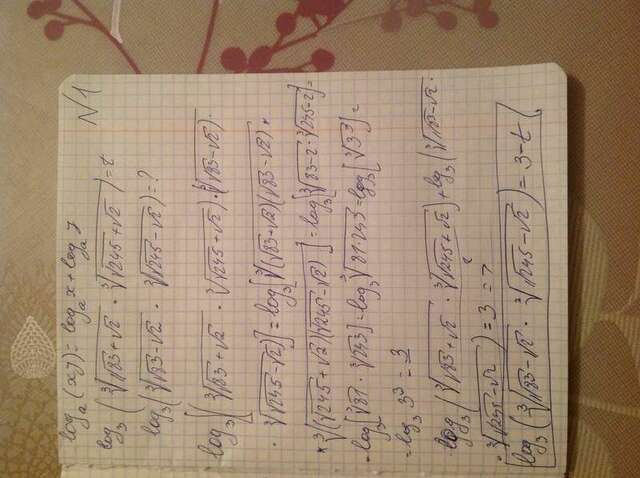 N 1
log_a (xy) = log_a x + log_a y
log_3 (∛(√83+√2) · ∛(√245+√2)) = t
log_3 (∛(√83-√2) · ∛(√245-√2)) = ?
log_3 [(∛(√83+√2) · ∛(√245+√2) · ∛(√83-√2) ·
· ∛(√245-√2)] = log_3 [∛((√83+√2)(√83-√2)) ×
× ∛((√245+√2)(√245-√2))] = log_3 [∛(83-2) · ∛(245-2)] =
= log_3 [∛81 · ∛243] = log_3 ∛(81·243) = log_3 [∛3^9] =
= log_3 3^3 = 3
log_3 (∛(√83+√2) · ∛(√245+√2)) + log_3 (∛(√83-√2) ·
· ∛(√245-√2)) = 3 =>
log_3 (∛(√83-√2) · ∛(√245-√2)) = 3-t